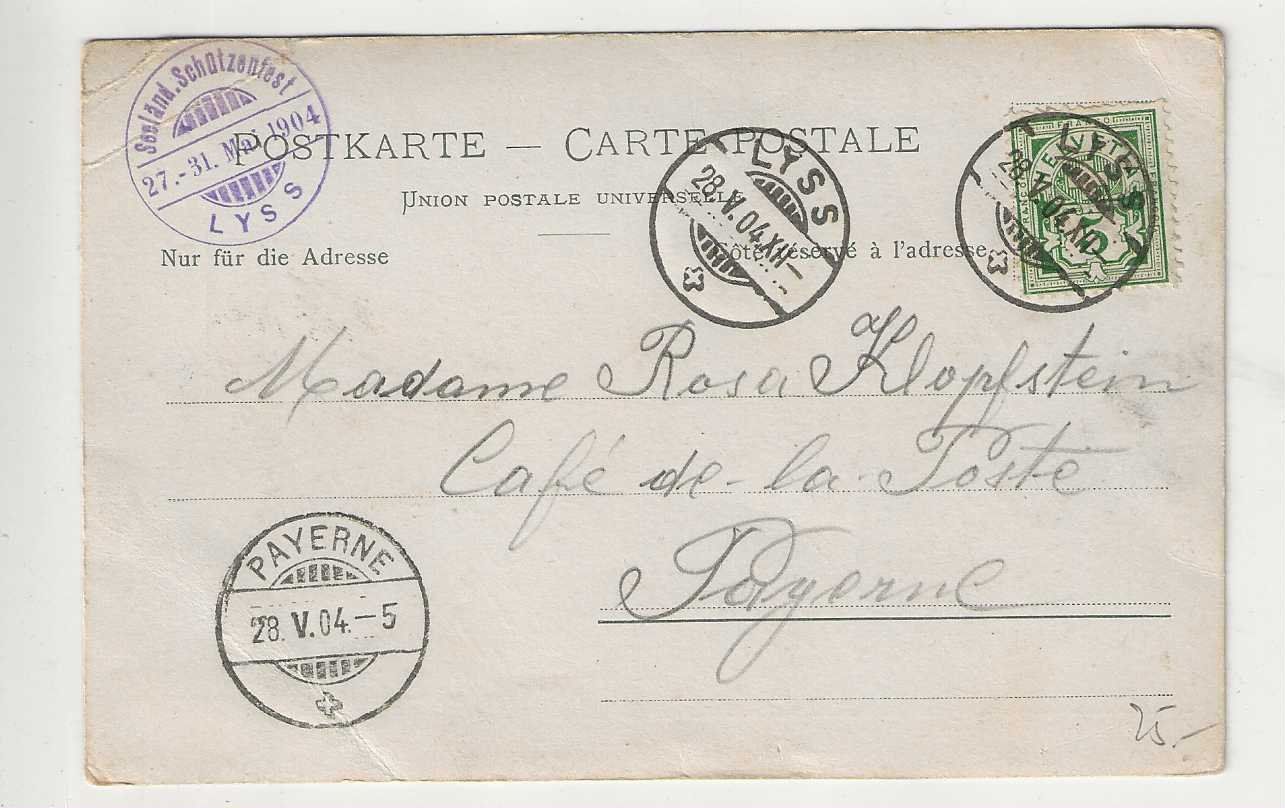 Seeländ. Schützenfest
27.-31. Mai 1904
LYSS
POSTKARTE — CARTE POSTALE
UNION POSTALE UNIVERSELLE
Nur für die Adresse
Côté réservé à l'adresse
LYSS
28.V.04.XII–
FRANCO
HELVETIA
5
LYSS
28.V.04.XII–
Madame Rosa Klopfstein
Café de-la-Poste
Payerne
PAYERNE
28.V.04.–5
25.-